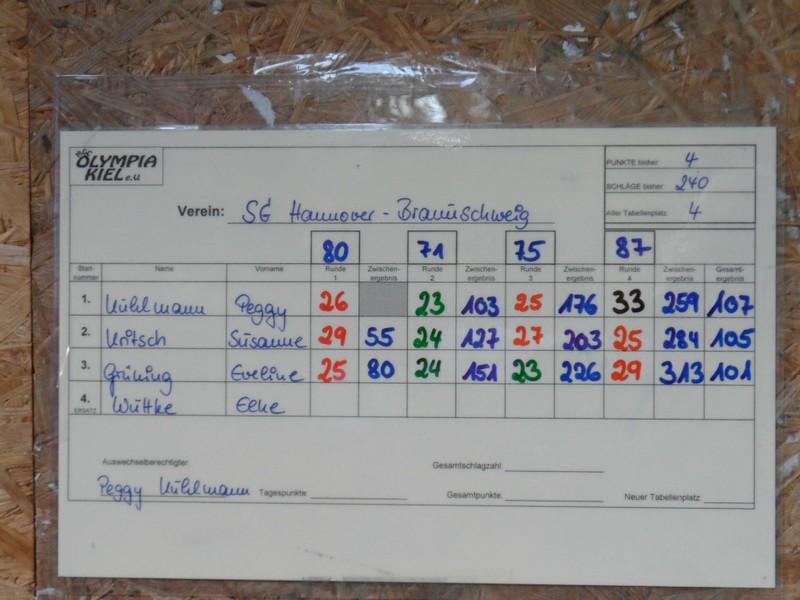 BGC
OLYMPIA
KIEL e.V.
PUNKTE bisher: 4
SCHLÄGE bisher: 240
Alter Tabellenplatz: 4
Verein: SG Hannover-Braunschweig
80 71 75 87
Start-nummer Name Vorname Runde 1 Zwischen-ergebnis Runde 2 Zwischen-ergebnis Runde 3 Zwischen-ergebnis Runde 4 Zwischen-ergebnis Gesamt-ergebnis
1. Kühlmann Peggy 26 23 103 25 176 33 259 107
2. Kritsch Susanne 29 55 24 127 27 203 25 284 105
3. Grüning Eveline 25 80 24 151 23 226 29 313 101
4. ERSATZ Wuttke Elke
Auswechselberechtigter: Gesamtschlagzahl:
Peggy Kühlmann Tagespunkte: Gesamtpunkte: Neuer Tabellenplatz: